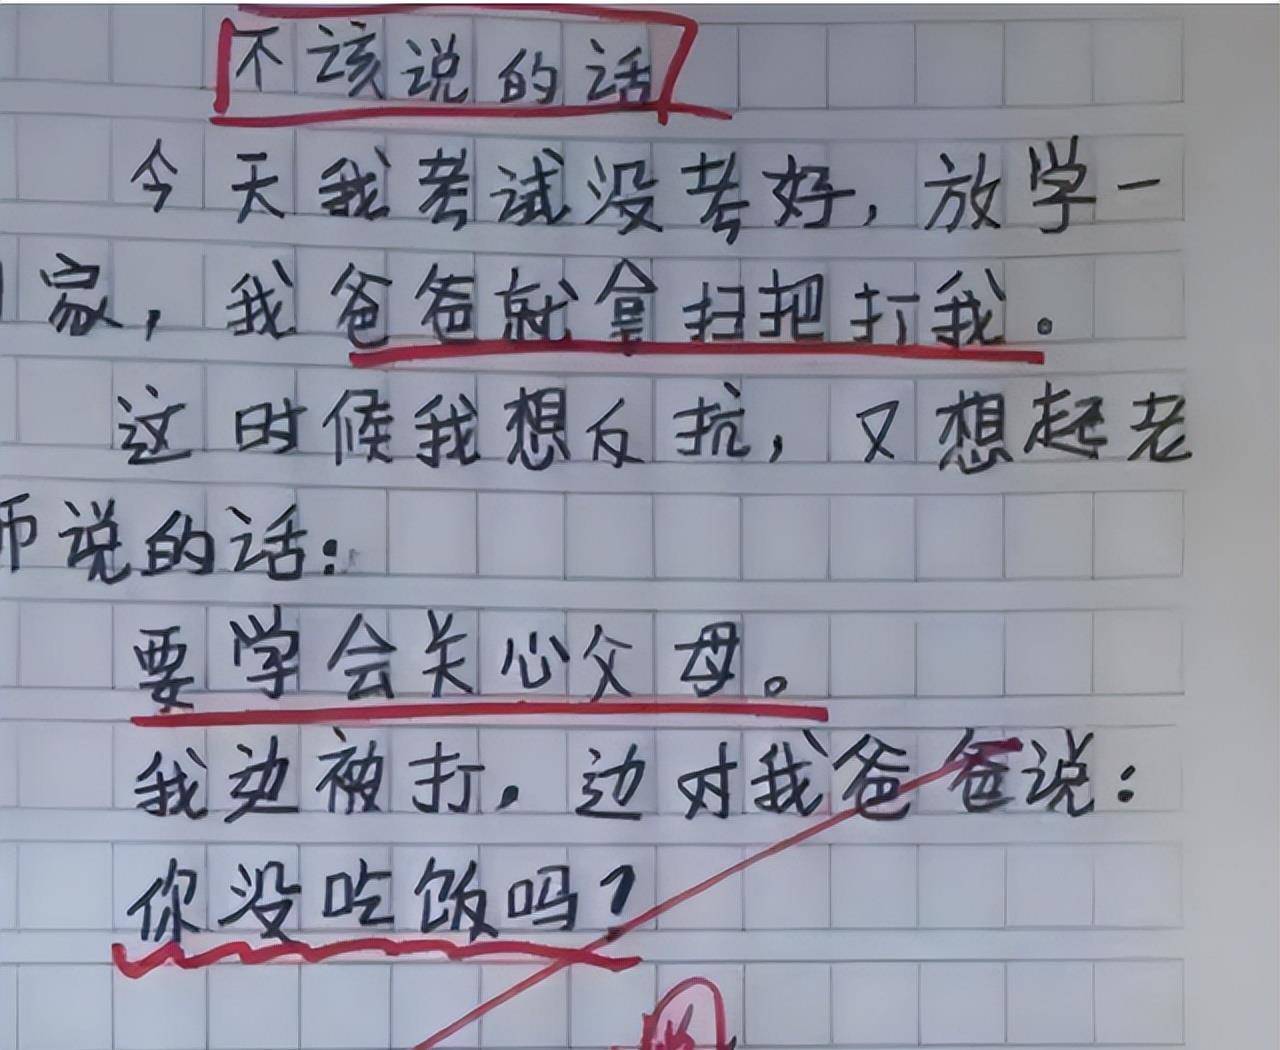 不该说的话
今天我考试没考好，放学一
家，我爸爸就拿扫把打我。
这时候我想反抗，又想起老
师说的话：
要学会关心父母。
我边被打，边对我爸爸说：
你没吃饭吗？